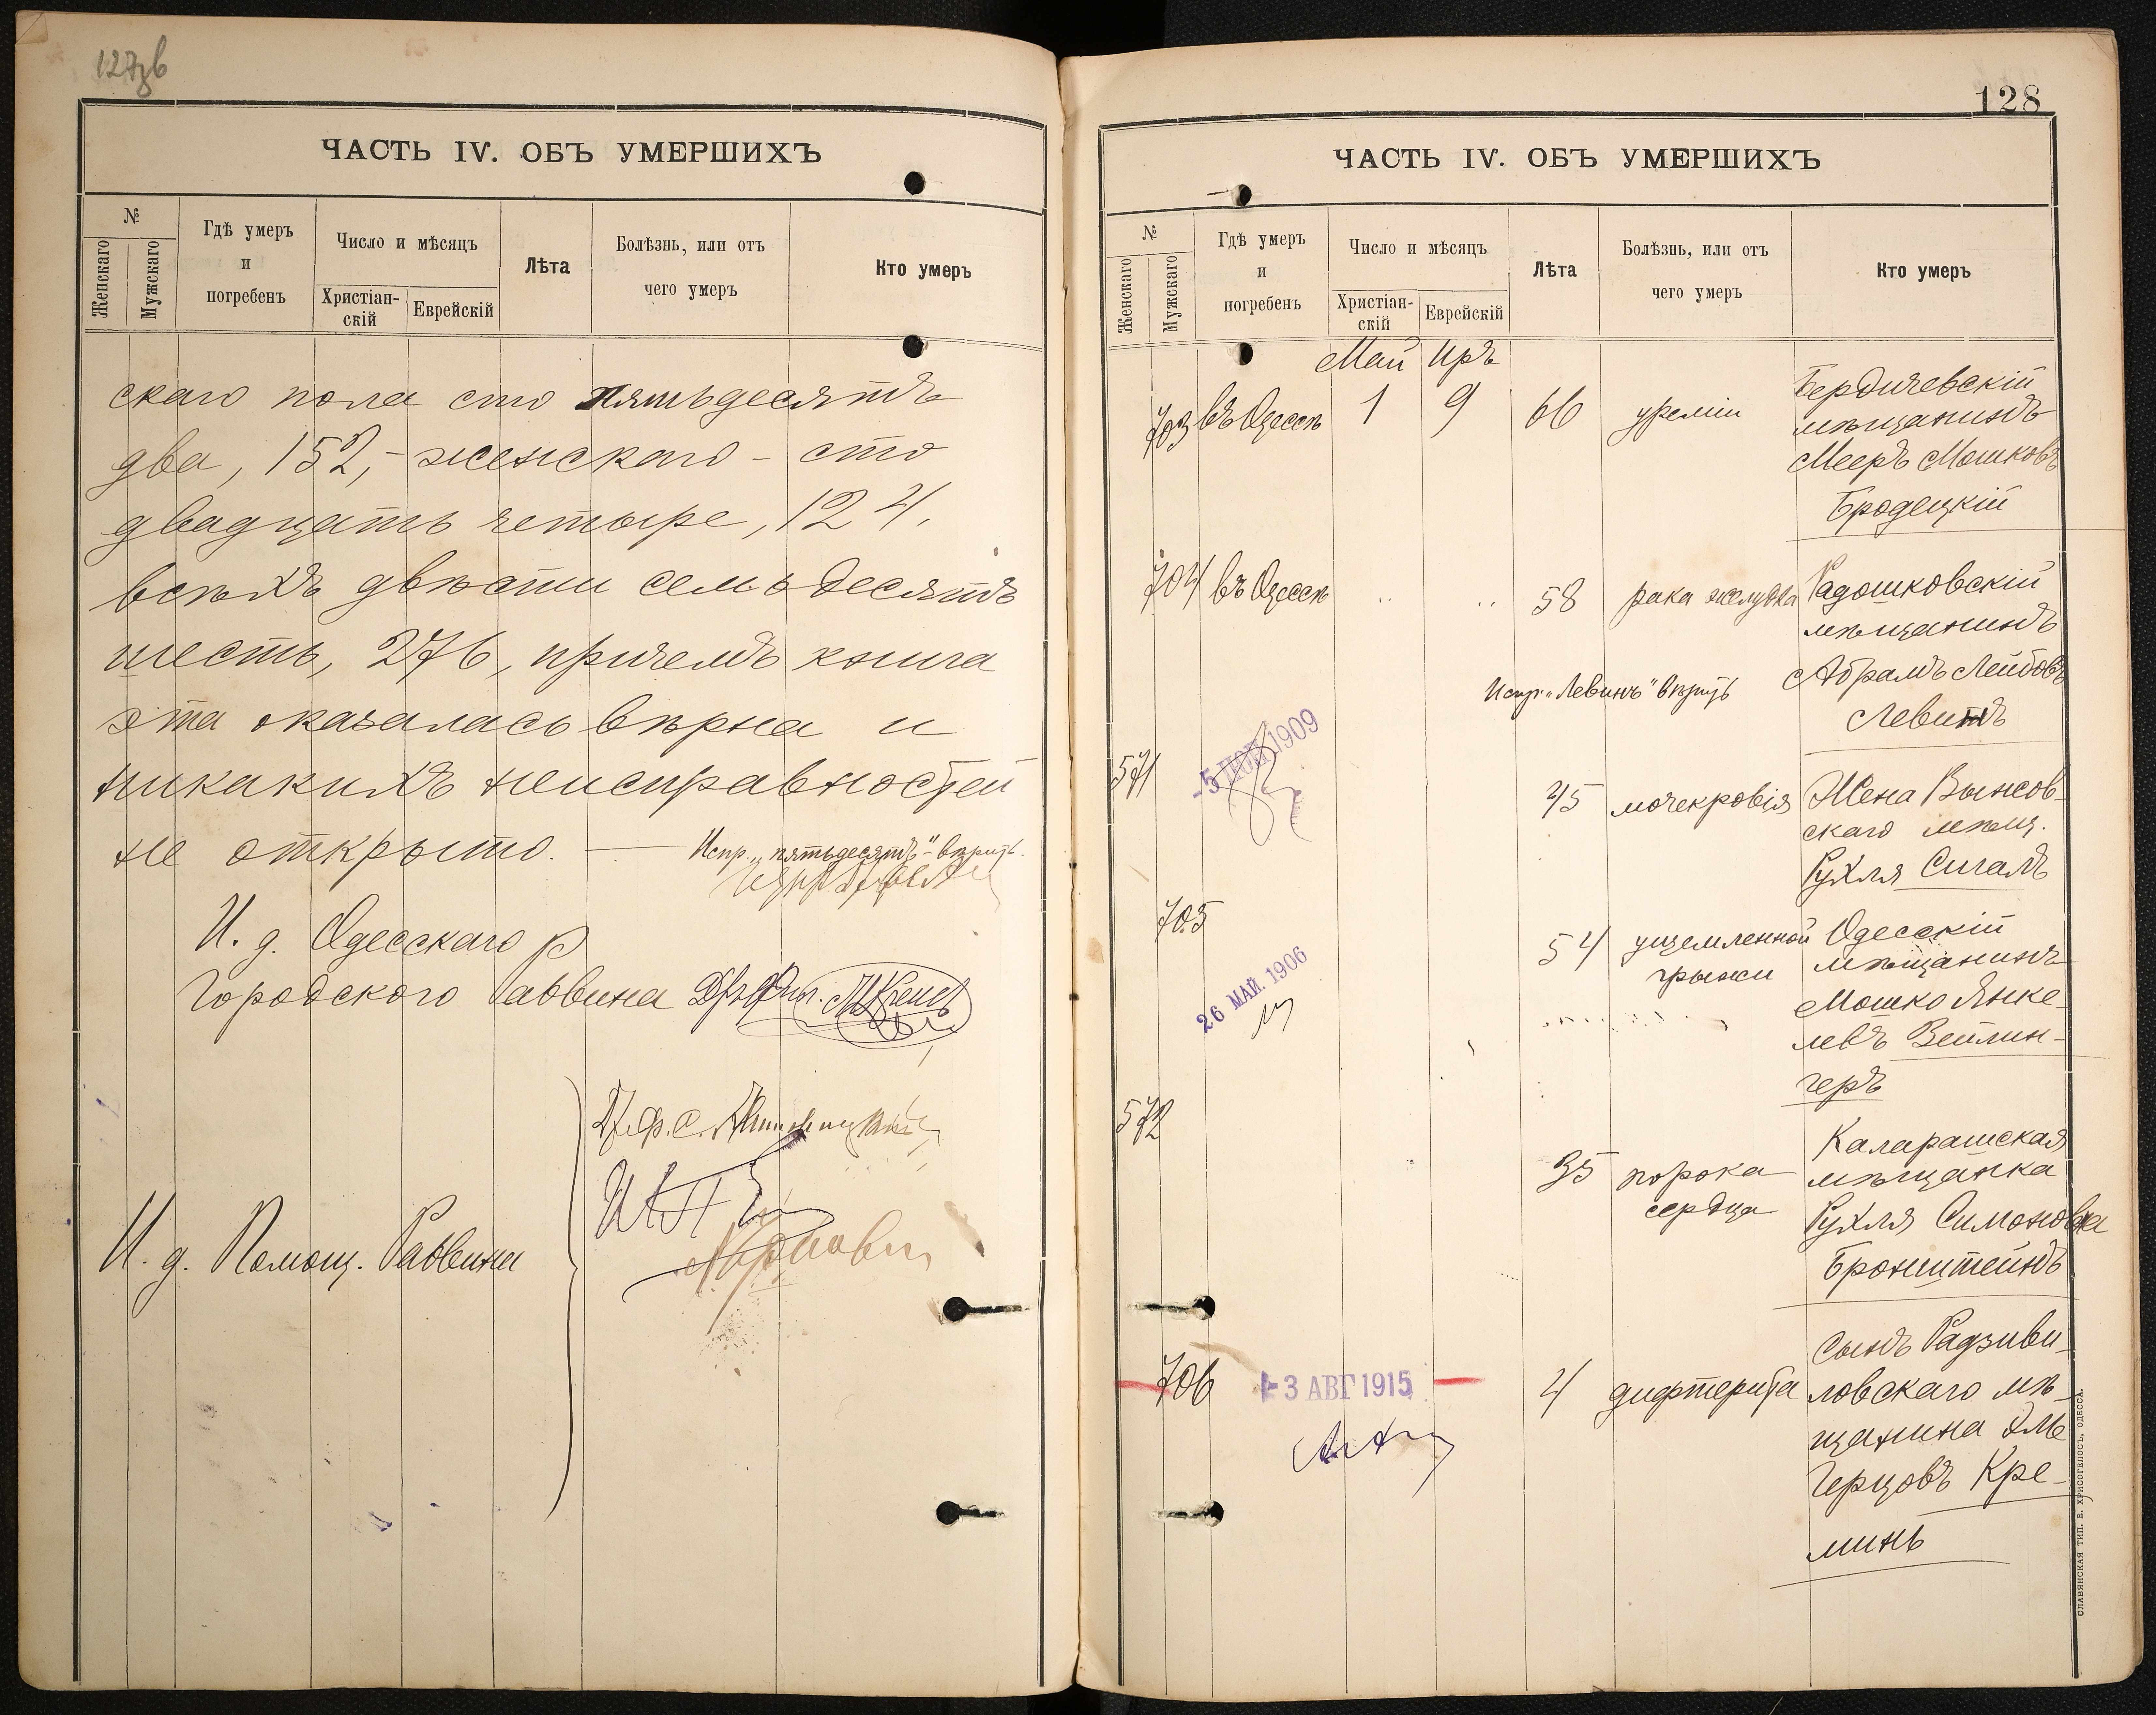 127об
ЧАСТЬ IV. ОБЪ УМЕРШИХЪ
№
Женскаго
Мужскаго
Гдѣ умеръ и погребенъ
Число и мѣсяцъ
Христіан-скій
Еврейскій
Лѣта
Болѣзнь, или отъ чего умеръ
Кто умеръ
скаго пола сто пятьдесятъ
два, 152, - женскаго - сто
двадцать четыре, 124,
всѣхъ двѣсти семьдесятъ
шесть, 276, причемъ книга
эта оказалась вѣрна и
никакихъ неисправностей
не открыто. — Испр. „пятьдесятъ" - вѣрить.
И. д. Одесскаго
Городского Раввина
И. д. Помощ. Раввина
128
ЧАСТЬ IV. ОБЪ УМЕРШИХЪ
№
Женскаго
Мужскаго
Гдѣ умеръ и погребенъ
Число и мѣсяцъ
Христіан-скій
Еврейскій
Лѣта
Болѣзнь, или отъ чего умеръ
Кто умеръ
Май Иръ
703 въ Одессѣ 1 9 66 уреміи Бердичевскій
мѣщанинъ
Мееръ Мошковъ
Бродецкій
704 въ Одессѣ .. .. 58 рака желудка Радошковскій
мѣщанинъ
Абрамъ Лейбовъ
Испр. „Левинъ" вѣрить
Левинъ
571 -5 ИЮН 1909 45 мочекровія Жена Вынсов-
скаго мѣщ.
Рухля Сигалъ
705 26 МАЙ. 1906 54 ущемленной грыжи Одесскій
мѣщанинъ
Мошко Янке-
левъ Вейлин-
геръ
572 35 порока сердца Каларашская
мѣщанка
Рухля Симонова
Бронштейнъ
706 -3 АВГ 1915 4 дифтерита Сынъ Радзиви-
ловскаго мѣ-
щанина Эль
Герцовъ Кре-
минь
СЛАВЯНСКАЯ ТИП. Е. ХРИСОГЕЛОСЪ, ОДЕССА.